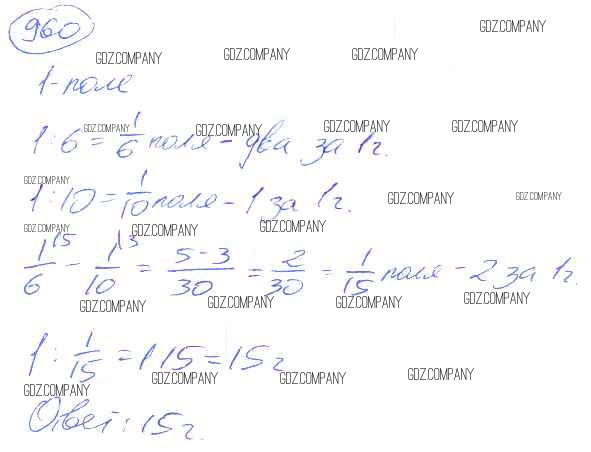 960
GDZ.COMPANY GDZ.COMPANY GDZ.COMPANY GDZ.COMPANY
1 - поле
GDZ.COMPANY GDZ.COMPANY GDZ.COMPANY GDZ.COMPANY
1 : 6 = 1/6 поля - два за 1ч.
GDZ.COMPANY GDZ.COMPANY GDZ.COMPANY
1 : 10 = 1/10 поля - 1 за 1ч.
GDZ.COMPANY GDZ.COMPANY GDZ.COMPANY
1/6 \5 - 1/10 \3 = 5-3/30 = 2/30 = 1/15 поля - 2 за 1ч.
GDZ.COMPANY GDZ.COMPANY GDZ.COMPANY GDZ.COMPANY
1 : 1/15 = 1·15 = 15ч
GDZ.COMPANY GDZ.COMPANY GDZ.COMPANY GDZ.COMPANY
Ответ: 15ч.